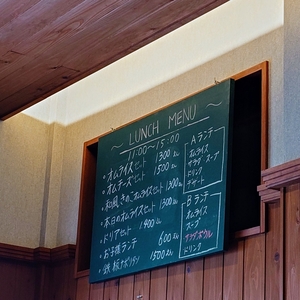 ～ LUNCH MENU ～
11:00～15:00
・オムライスセット 1300
・オムチーズセット 1500
・和風きのこオムライスセット 1300
・本日のオムライスセット 1300
・ドリアセット 1400
・お子様ランチ 600
・鉄板ナポリタン 1500
Aランチ
オムライス
サラダ スープ
ドリンク
デザート
Bランチ
オムライス
スープ
ドリンク